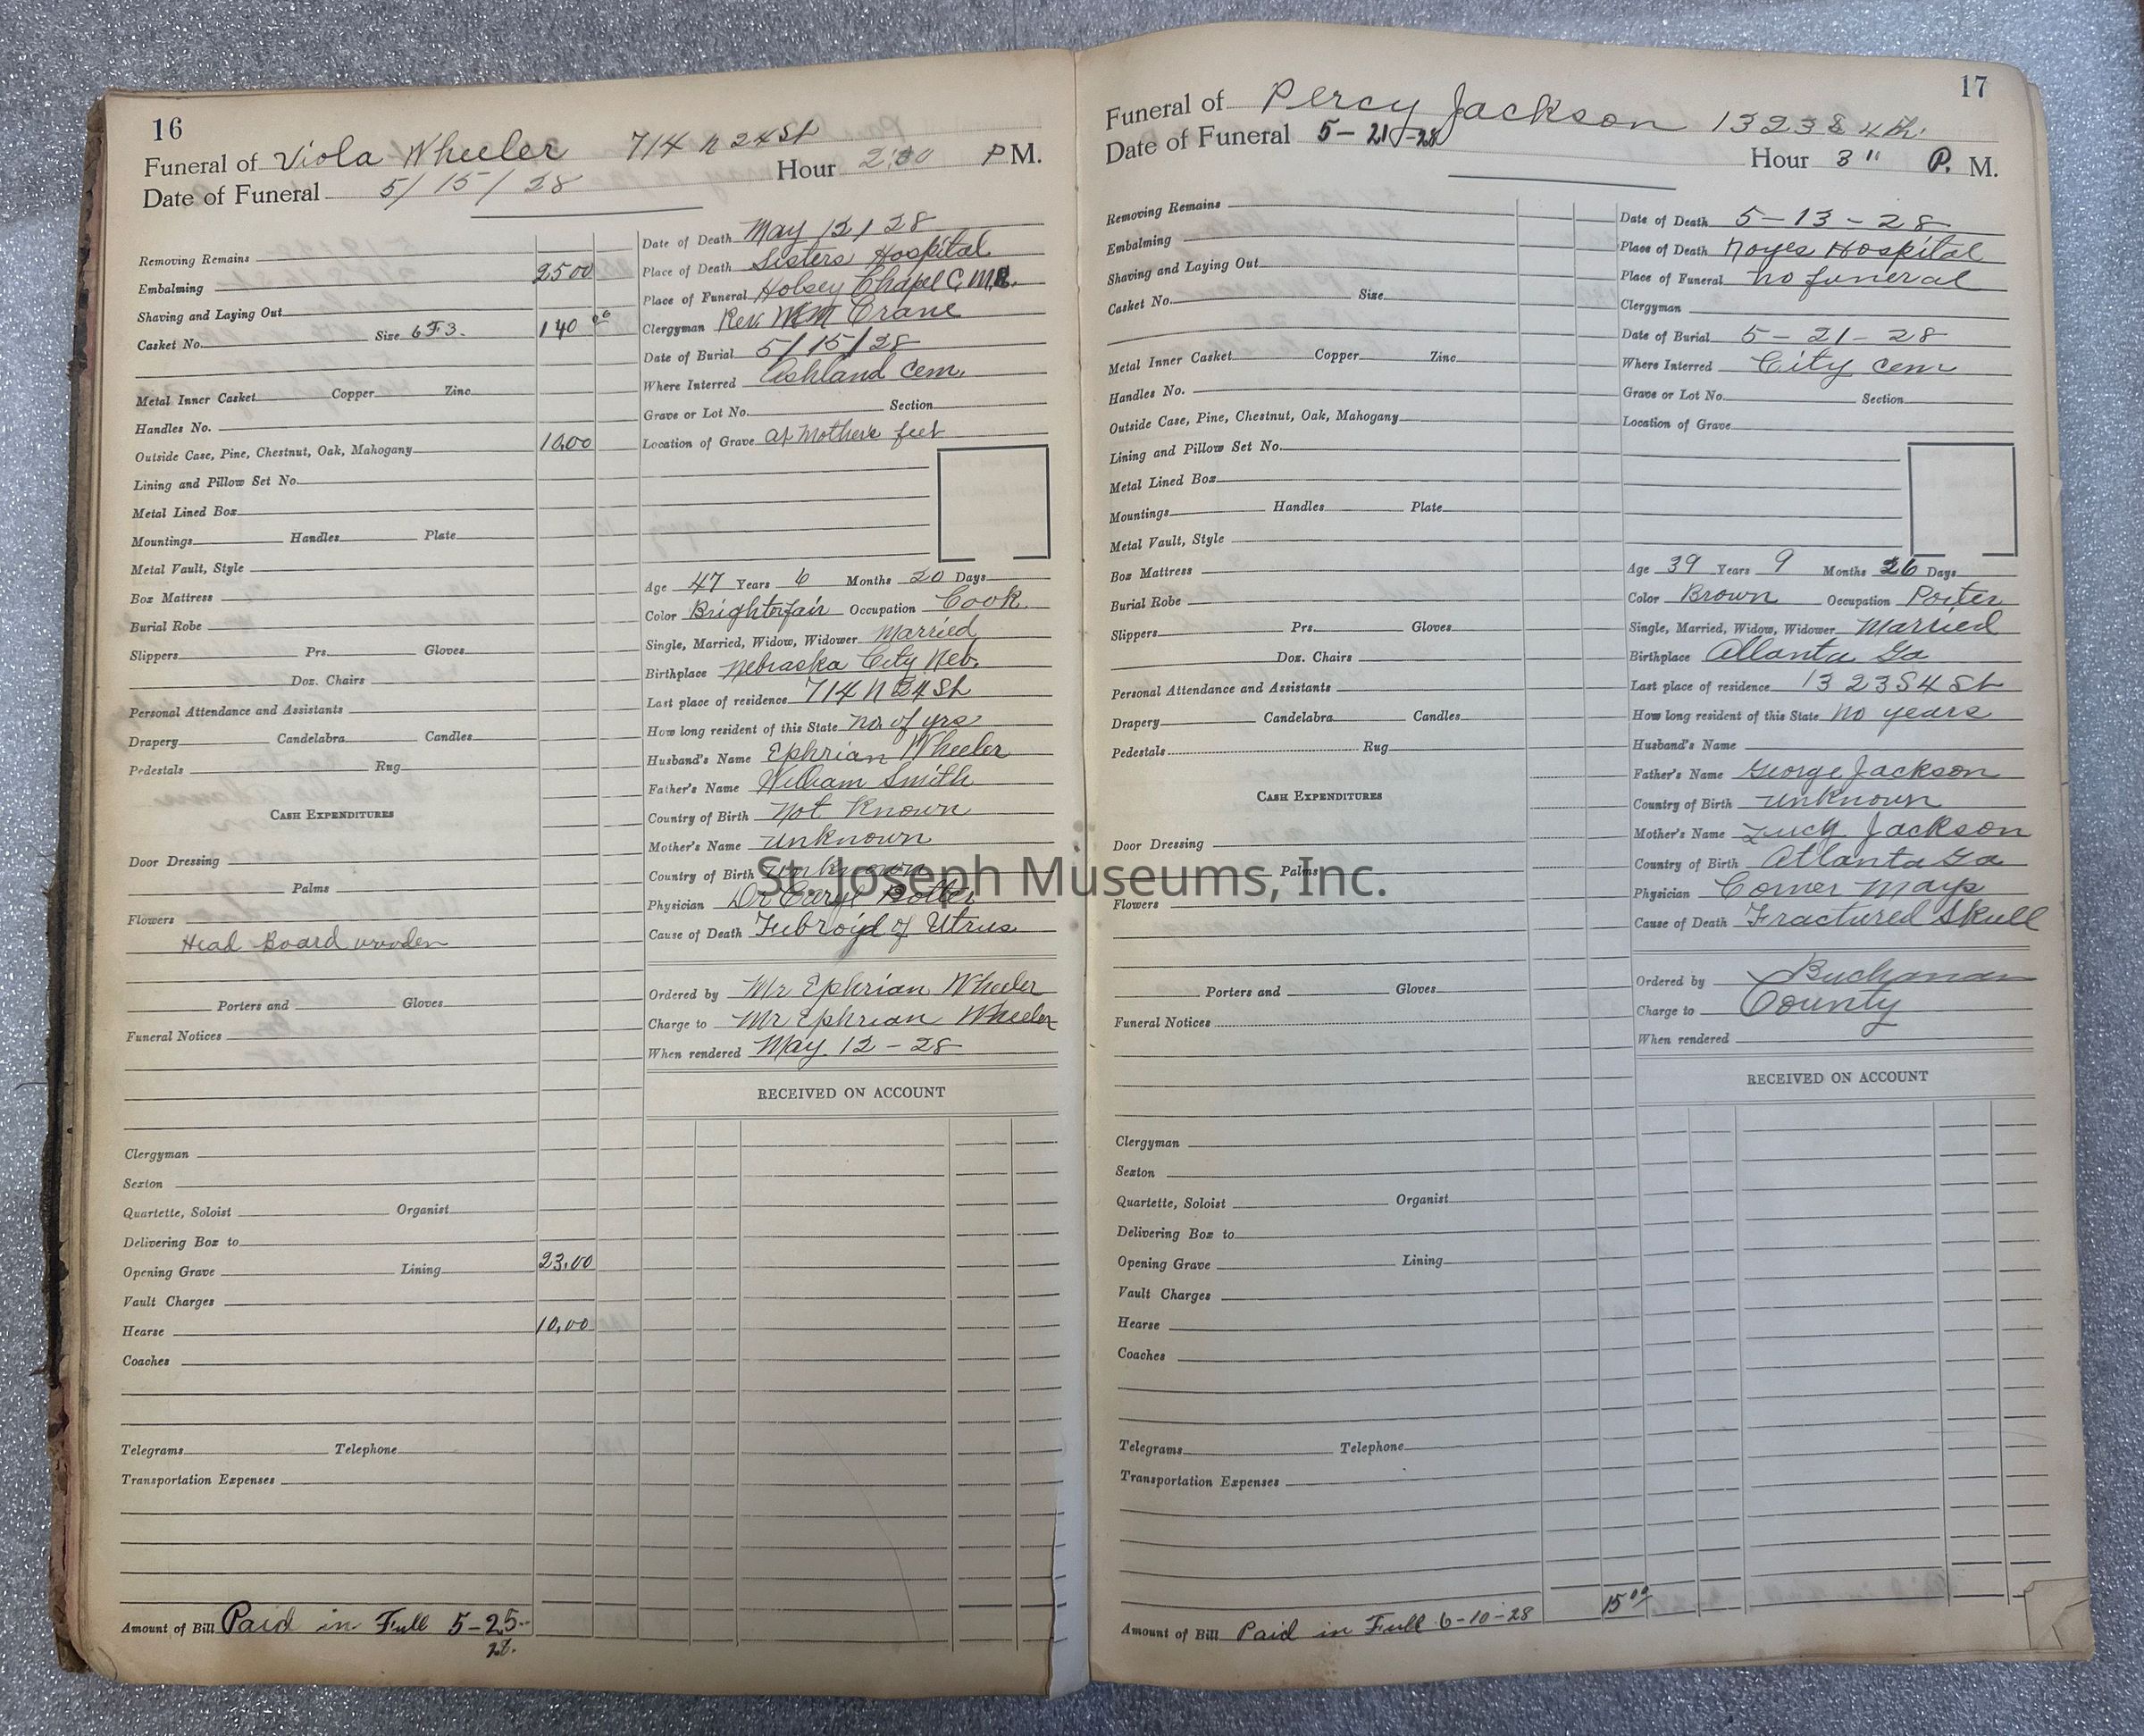 16
Funeral of Viola Wheeler 714 n 24 St
Date of Funeral 5/15/28 Hour 2:30 P M.
Removing Remains
Embalming 25 00
Shaving and Laying Out
Casket No. Size 6F3. 140 00
Metal Inner Casket Copper Zinc
Handles No.
Outside Case, Pine, Chestnut, Oak, Mahogany 10.00
Lining and Pillow Set No.
Metal Lined Box
Mountings Handles Plate
Metal Vault, Style
Box Mattress
Burial Robe
Slippers Prs. Gloves
Doz. Chairs
Personal Attendance and Assistants
Drapery Candelabra Candles
Pedestals Rug
CASH EXPENDITURES
Door Dressing
Palms
Flowers
Head Board wooden
Porters and Gloves
Funeral Notices
Clergyman
Sexton
Quartette, Soloist Organist
Delivering Box to
Opening Grave Lining 23.00
Vault Charges
Hearse 10.00
Coaches
Telegrams Telephone
Transportation Expenses
Amount of Bill Paid in Full 5-25-
28.
Date of Death May 12/28
Place of Death Sisters Hospital
Place of Funeral Holsey Chapel C.M.E.
Clergyman Rev. Wm Crane
Date of Burial 5/15/28
Where Interred Ashland Cem.
Grave or Lot No. Section
Location of Grave at Mothers feet
Age 47 Years 6 Months 20 Days
Color Brightorfair Occupation Cook
Single, Married, Widow, Widower Married
Birthplace Nebraska City Neb.
Last place of residence 714 N 24 St
How long resident of this State no. of yrs
Husband's Name Ephrian Wheeler
Father's Name William Smith
Country of Birth Not Known
Mother's Name unknown
Country of Birth unknown
Physician Dr Caryl Potter
Cause of Death Fubroid of Utrus
Ordered by Mr Ephrian Wheeler
Charge to Mr Ephrian Wheeler
When rendered May. 12-28
RECEIVED ON ACCOUNT
17
Funeral of Percy Jackson 1323 S 4th.
Date of Funeral 5-21-28 Hour 3" P. M.
Removing Remains
Embalming
Shaving and Laying Out
Casket No. Size
Metal Inner Casket Copper Zinc
Handles No.
Outside Case, Pine, Chestnut, Oak, Mahogany
Lining and Pillow Set No.
Metal Lined Box
Mountings Handles Plate
Metal Vault, Style
Box Mattress
Burial Robe
Slippers Prs. Gloves
Doz. Chairs
Personal Attendance and Assistants
Drapery Candelabra Candles
Pedestals Rug
CASH EXPENDITURES
Door Dressing
Palms
Flowers
Porters and Gloves
Funeral Notices
Clergyman
Sexton
Quartette, Soloist Organist
Delivering Box to
Opening Grave Lining
Vault Charges
Hearse
Coaches
Telegrams Telephone
Transportation Expenses
Amount of Bill Paid in Full 6-10-28 15 00
Date of Death 5-13-28
Place of Death Noyes Hospital
Place of Funeral no funeral
Clergyman
Date of Burial 5-21-28
Where Interred City Cem
Grave or Lot No. Section
Location of Grave
Age 39 Years 9 Months 26 Days
Color Brown Occupation Porter
Single, Married, Widow, Widower Married
Birthplace Atlanta Ga
Last place of residence 1323 S 4 St
How long resident of this State No years
Husband's Name
Father's Name George Jackson
Country of Birth unknown
Mother's Name Lucy Jackson
Country of Birth Atlanta Ga
Physician Corner Mays
Cause of Death Fractured Skull
Ordered by Buchanan
Charge to County
When rendered
RECEIVED ON ACCOUNT
St. Joseph Museums, Inc.